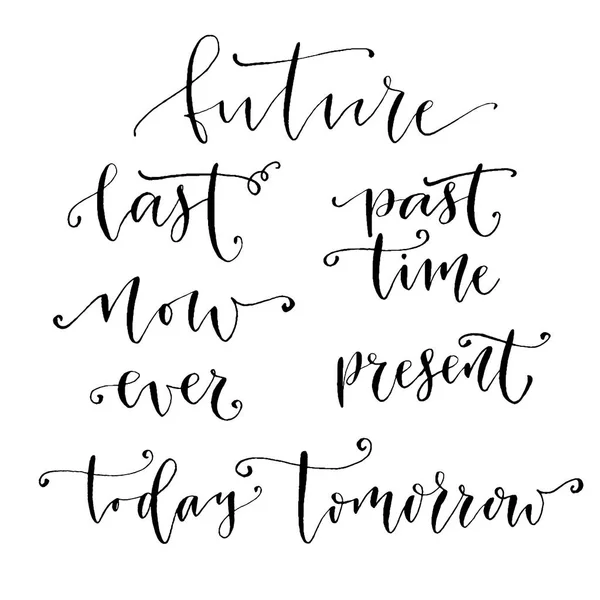 future
last
past
time
now
present
ever
today tomorrow